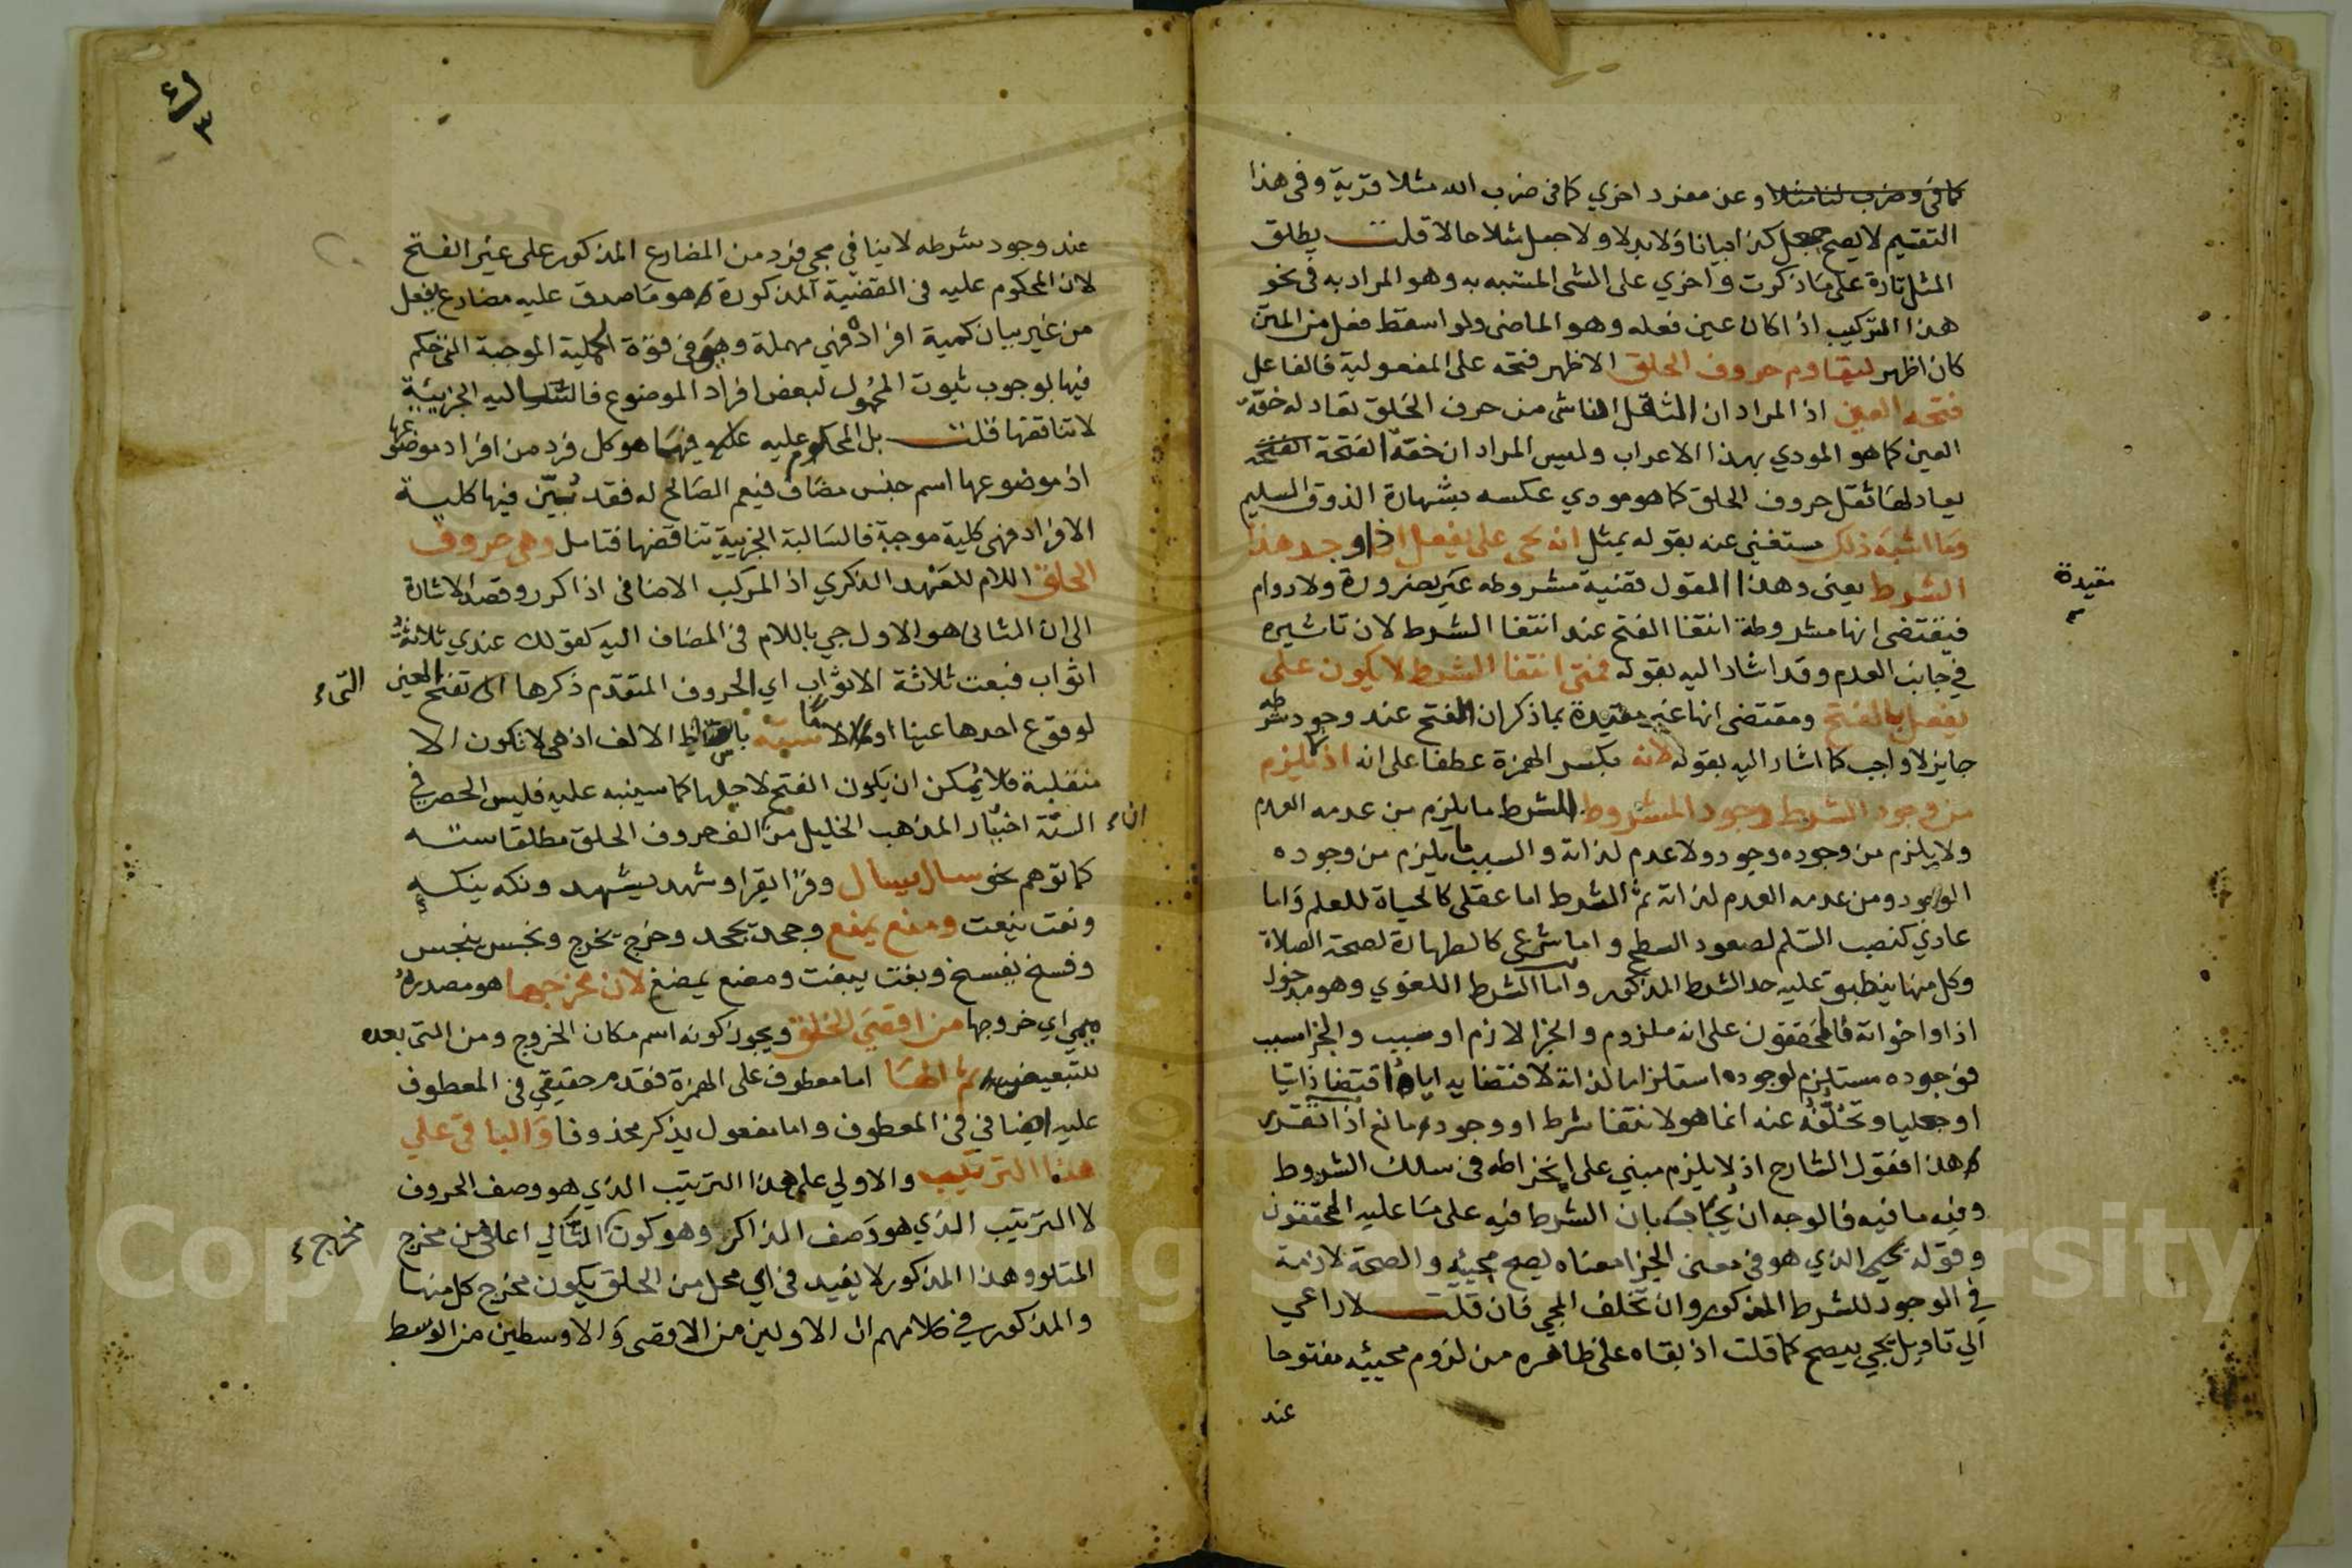 كما في وضرب لنا مثلا وعن مفرد اخري كما في ضرب الله مثلا قرية وفي هذا
التقسيم لا يصح جعل كذا بيانا ولا بدلا ولا جعل مثلا حالا قلت يطلق
المثل تارة على ما ذكرت واخري على الشى المشبه به وهو المراد به في نحو
هذا التركيب اذا كان عين فعله وهو الماضى ولو اسقط فعل من المتن
كان اظهر ليقاوم حروف الحلق الاظهر فتحه على المفعولية فالفاعل
فتحه العين اذ المراد ان الثقل الناشى من حرف الحلق تعادله خفة
العين كما هو المودي بهذا الاعراب وليس المراد ان خفة الفتحة
يعادلها ثقل حروف الحلق كما هو مودي عكسه بشهادة الذوق السليم
وما اشبه ذلك مستغنى عنه بقوله بمثل انه يجى على يفعل اذا وجد هذا
الشرط يعنى وهذا المقول قضية مشروطه غير بضرورة ولا دوام
فيقتضى انها مشروطة انتفا الفتح عند انتفا الشرط لان تاثيره
في جانب العدم وقد اشار اليه بقوله فمتى انتفا الشرط لا يكون على
يفعل بالفتح ومقتضى انها غير مقيدة بما ذكر ان الفتح عند وجود شرطه
جايز لا واجب كما اشار اليه بقوله لانه بكسر الهمزة عطفا على انه اذ لا يلزم
من وجود الشرط وجود المشروط الشرط ما يلزم من عدمه العدم
ولا يلزم من وجوده وجود ولا عدم لذاته والسبب ما يلزم من وجوده
الوجود ومن عدمه العدم لذاته ثم الشرط اما عقلى كالحياة للعلم واما
عادي كنصب السلم لصعود السطح واما شرعى كالطهارة لصحة الصلاة
وكل منها ينطبق عليه حد الشرط المذكور واما الشرط اللغوي وهو مدخول
اذا واخواته فالمحققون على انه ملزوم والجزا لازم او سبب والجزا مسبب
فوجوده مستلزم لوجوده استلزاما لذاته لاقتضايه اياه اقتضا ذاتيا
او جعليا وتخلفه عنه انما هو لانتفا شرط او وجود مانع اذا تقرر
هذا فقول الشارح اذ لا يلزم مبني على انخراطه في سلك الشروط
وفيه ما فيه فالوجه ان يجاب بان الشرط فيه على ما عليه المحققون
وقوله يجى الذي هو في معنى الجزا معناه يصح مجيئه والصحة لازمة
في الوجود للشرط المذكور وان تخلف المجى فان قلت لا داعي
الي تاويل يجي بيصح كما قلت اذ بقاه على ظاهره من لزوم مجيئه مفتوحا
عند
مقيدة
عند وجود شرطه لا ينافي مجى فرد من المضارع المذكور على غير الفتح
لان المحكوم عليه في القضية المذكورة هو ما صدق عليه مضارع يفعل
من غير بيان كمية افراده فهي مهملة وهي في قوة الجملية الموجبة التى حكم
فيها بوجوب ثبوت المحمول لبعض افراد الموضوع فالسالبة الجزيية
لا تناقضها قلت بل المحكوم عليه فيها هو كل فرد من افراد موضوعها
اذ موضوعها اسم جنس مضاف فيعم الصالح له فقد تبين فيها كلية
الافراد فهى كلية موجبة فالسالبة الجزيية تناقضها فتامل وهى حروف
الحلق اللام للعهد الذكري اذ المركب الاضافى اذا كرر وقصد الاشارة
الى ان الثانى هو الاول جي باللام في المضاف اليه كقولك عندي ثلاثة
اثواب فبعت ثلاثة الاثواب اي الحروف المتقدم ذكرها تفتح العين التى
لوقوع احدها عينا او لاما ستة باسقاط الالف اذ هى لا تكون الا
منقلبة فلا يمكن ان يكون الفتح لاجلها كما سينبه عليه فليس الحصر في
الستة اختيار المذهب الخليل من ان الف حروف الحلق مطلقا ستة
كما توهم نحو سال يسال وقرا يقرا وشهد يشهد ونكه ينكه
ونعت ينعت ومنع يمنع وجحد يجحد وخرج يخرج ونخس ينخس
وفسخ يفسخ وبغت يبغت ومضغ يمضغ لان مخرجها هو مصدر
ميمي اي خروجها من اقصى الحلق ويجوز كونه اسم مكان الخروج ومن التى بعده
للتبعيض ثم الها اما معطوف على الهمزة فقدم حقيقي في المعطوف
عليه اضافي في المعطوف واما مفعول يذكر محذوفا والباقى على
هذا الترتيب والاولي على هذا الترتيب الذي هو وصف الحروف
لا الترتيب الذي هو وصف الذاكر وهو كون التالي اعلى من مخرج مخرج
المتلو وهذا المذكور لا يفيد في اي محل من الحلق يكون مخرج كل منها
والمذكور في كلامهم ان الاولين من الاقصى والاوسطين من الوسط
Copyright © King Saud University